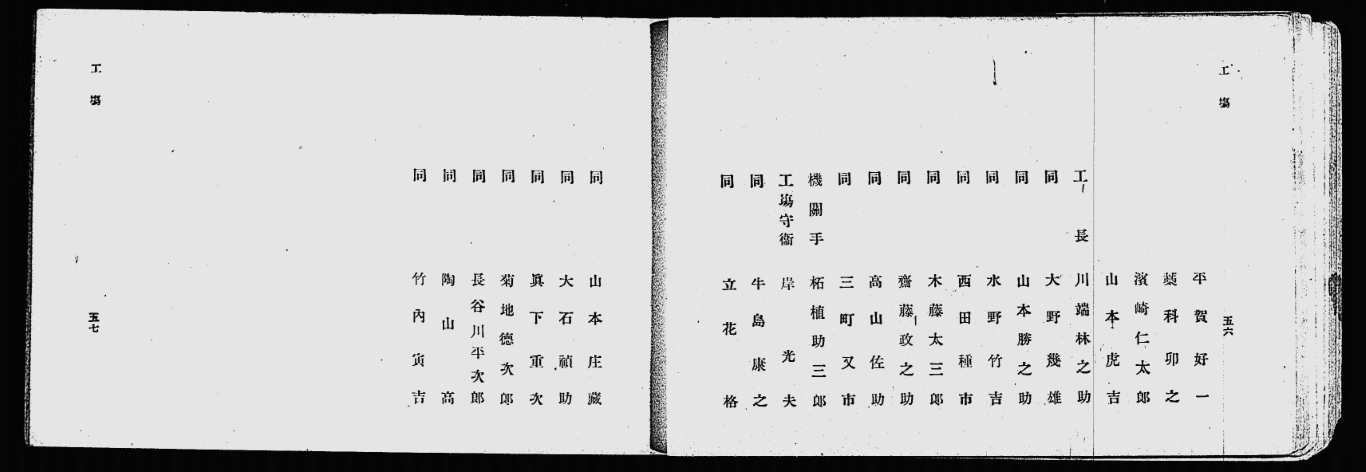 工場
五六
平賀好一
藁科卯之
濱崎仁太郎
山本虎吉
工長 川端林之助
同 大野幾雄
同 山本勝之助
同 水野竹吉
同 西田種市
同 木藤太三郎
同 齋藤政之助
同 高山佐助
同 三町又市
機關手 柘植助三郎
工場守衞 岸光夫
同 牛島康之
同 立花格
同 山本庄藏
同 大石禎助
同 眞下重次
同 菊地德次郎
同 長谷川平次郎
同 陶山高
同 竹內寅吉
工場
五七